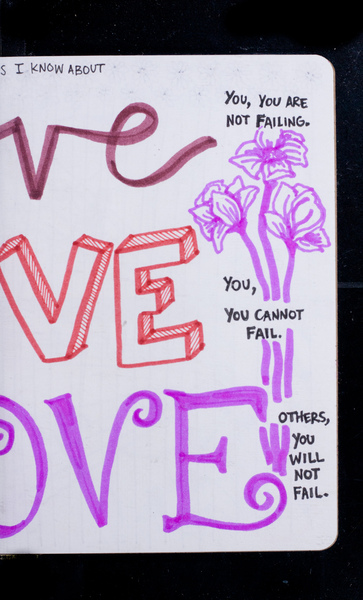 S I KNOW ABOUT
YOU, YOU ARE
NOT FAILING.
ve
VE
OVE
YOU,
YOU CANNOT
FAIL.
OTHERS,
YOU
WILL
NOT
FAIL.